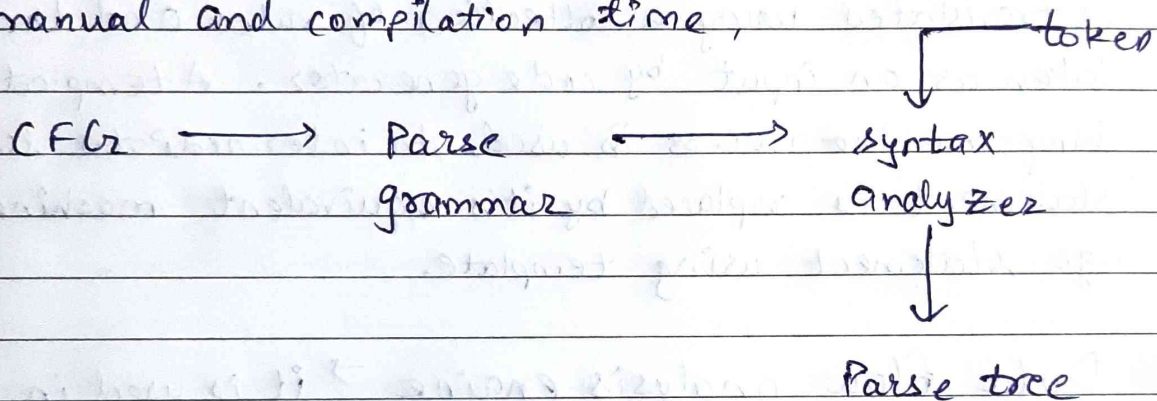 manual and compilation time,
token
CFG → Parse → syntax
grammar analyzer
Parse tree